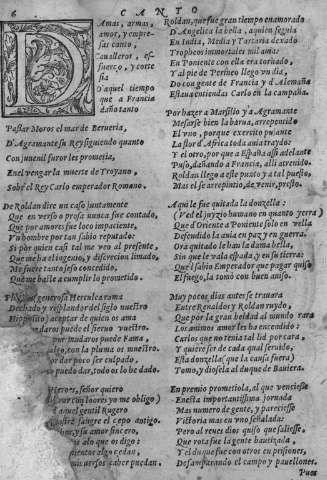 6 CANTO
DAmas, armas,
amor, y empre-
sas canto,
Caualleros, es-
fuerço, y corte
sia
D'aquel tiempo
que a Francia
daño tanto
Passar Moros el mar de Berueria,
D'Agramante su Rey siguiendo quanto
Con juuenil furor les prometia,
En el vengar la muerte de Troyano,
Sobr'el Rey Carlo emperador Romano.
De Roldan dire un caso juntamente
Que en verso o prosa nunca fue contado,
Que por amor fue loco impaciente,
Y u hombre por tan sabio reputado:
Si por quien casi tal me veo al presente,
Que me ha el ingenio, y discrecion limado,
Me fuere tanto seso concedido,
Que me baste a cumplir lo prometido.
generosa Herculea rama
Dechado y resplandor del siglo nuestro
Hippolito aceptar de quien os ama
daros puede el sieruo vuestro.
pudaros puede Fama,
algo, con la pluma os muestro.
por dar poco ser culpado,
puedo dar, todo os lo he dado.
Heroes, señor quiero
loores yo me obligo)
aquel gentil Rugero
Vuestro sangre el cepo antigo.
su amor sincero,
alo que os digo:
algo cedan,
versos caber puedan.
Roldan, que fue gran tiempo enamorado
D'Angelica la bella, aquien seguia
En India, Media y Tartaria dexado
Tropheos immortales mil auia:
En Poniente con ella era tornado,
Y al pie de Perineo llego un dia,
Do con gente de Francia y d'Alemaña
Estaua en tiendas Carlo en la campaña.
Por hazer a Marsilio y a Agramante
Messarse bien la barua, arrepentido
El uno, por que exercito pujante
La flor d'Africa toda aui a traydo:
Y el otro, por que a España assi adelante
Puso, dañando a Francia, alli atreuido.
Roldan llego a este punto y a tal puesto,
Mas el se arrepintio, de venir, presto.
Aqui le fue quitada la donzella:
(Ved el juyzio humano en quanto yerra)
Que d'Oriente a Poniente solo en vella
Defendido la auia en paz y en guerra:
Ora quitado le han la dama bella,
Sin que le vala espada, y en su tierra:
Qu'el sabio Emperador que pagar quiso
El fuego, la tomó con buen auiso.
Muy pocos dias ante se trauara
Entre Renaldos y Roldan ruydo,
Que por la gran beldad al mundo rara
Los animos amor les ha encendido:
Carlos que no tenia tal lid por cara,
Y quiere ser de cada qual seruido,
Esta donzella (que la causa fuera)
Tomo, y diosela al duque de Bauiera.
En premio prometiola, al que venciesse
En esta importantissima jornada
Mas numero de gente, y pareciesse
Victoria mas en uno señalada:
Pero al reues dire quiso que saliesse,
Que rota fue la gente bautizada,
Y el duque fue con otros en prisiones,
Desamparando el campo y pauellones.
Pues